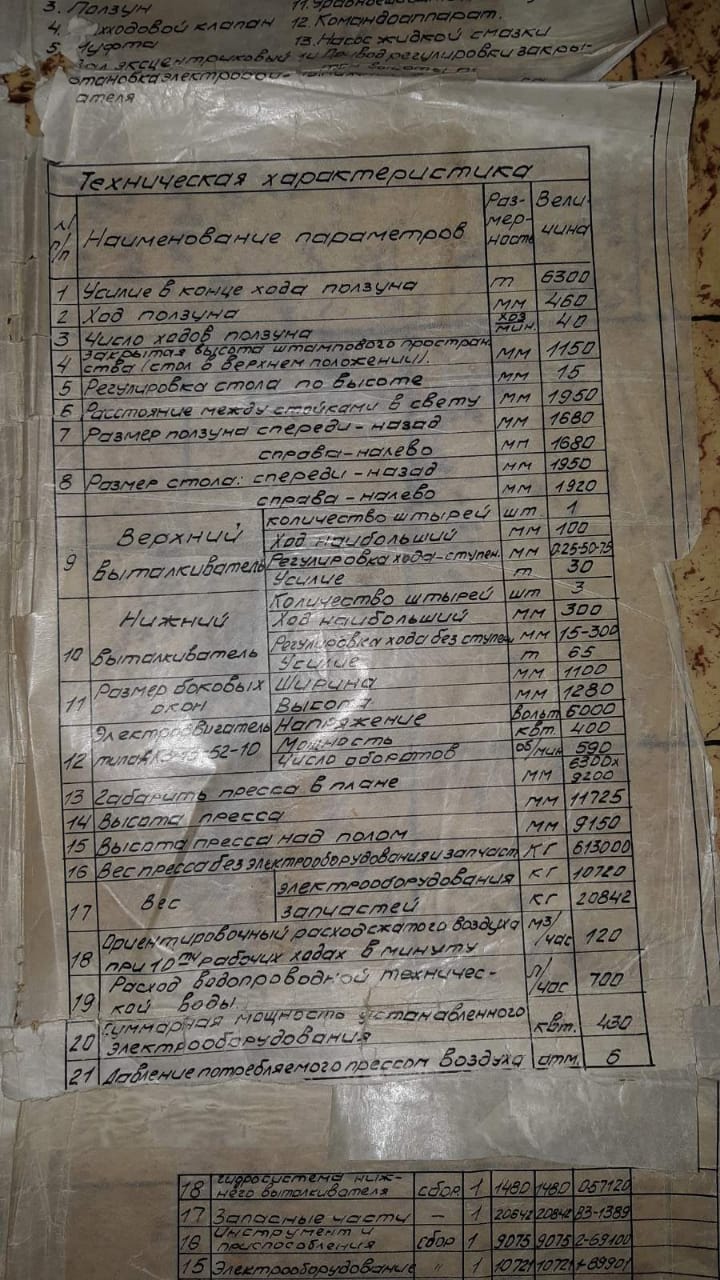 3. Ползун
4. ходовой клапан 12. Командоаппарат.
5 Муфта 13. Насос жидкой смазки
вал эксцентриковый 14 Привод регулировки закры-
ателя
Техническая характеристика
п/п Наименование параметров Раз-мер-ность Вели-чина
1 Усилие в конце хода ползуна т 6300
2 Ход ползуна мм 460
3 Число ходов ползуна ход/мин. 40
4 Закрытая высота штампового простран.
ства (стол в верхнем положении). мм 1150
5 Регулировка стола по высоте мм 15
6 Расстояние между стойками в свету мм 1950
7 Размер ползуна спереди-назад мм 1680
справа-налево мм 1680
8 Размер стола: спереди-назад мм 1950
справа-налево мм 1920
9 Верхний выталкиватель количество штырей шт. 1
Ход наибольший мм 100
Регулировка хода-ступен. мм 0-25-50-75
Усилие т 30
10 Нижний выталкиватель Количество штырей шт 3
Ход наибольший мм 300
Регулировка хода без ступен мм 15-300
Усилие т 65
11 Размер боковых окон Ширина мм 1100
Высота мм 1280
12 Электродвигатель типа 52-10 Напряжение вольт 6000
Мощность квт. 400
Число оборотов об/мин 590
13 Габариты пресса в плане мм 6300х
9200
14 Высота пресса мм 11725
15 Высота пресса над полом мм 9150
16 Вес пресса без электрооборудования и запчаст кг 613000
17 Вес электрооборудования кг 10720
запчастей кг 20842
18 Ориентировочный расход сжатого воздуха
при 10ти рабочих ходах в минуту м3/час 120
19 Расход водопроводной техничес-
кой воды. л/час 700
20 Суммарная мощность установленного
электрооборудования квт. 430
21 Давление потребляемого прессом воздуха атм. 6
18 гидросистема ниж-
него выталкивателя сбор 1 1480 1480 057120
17 Запасные части — 1 20842 20842 83-1389
16 Инструмент и
приспособления сбор 1 9075 9075 2-69100
15 Электрооборудование " 1 10721 10721